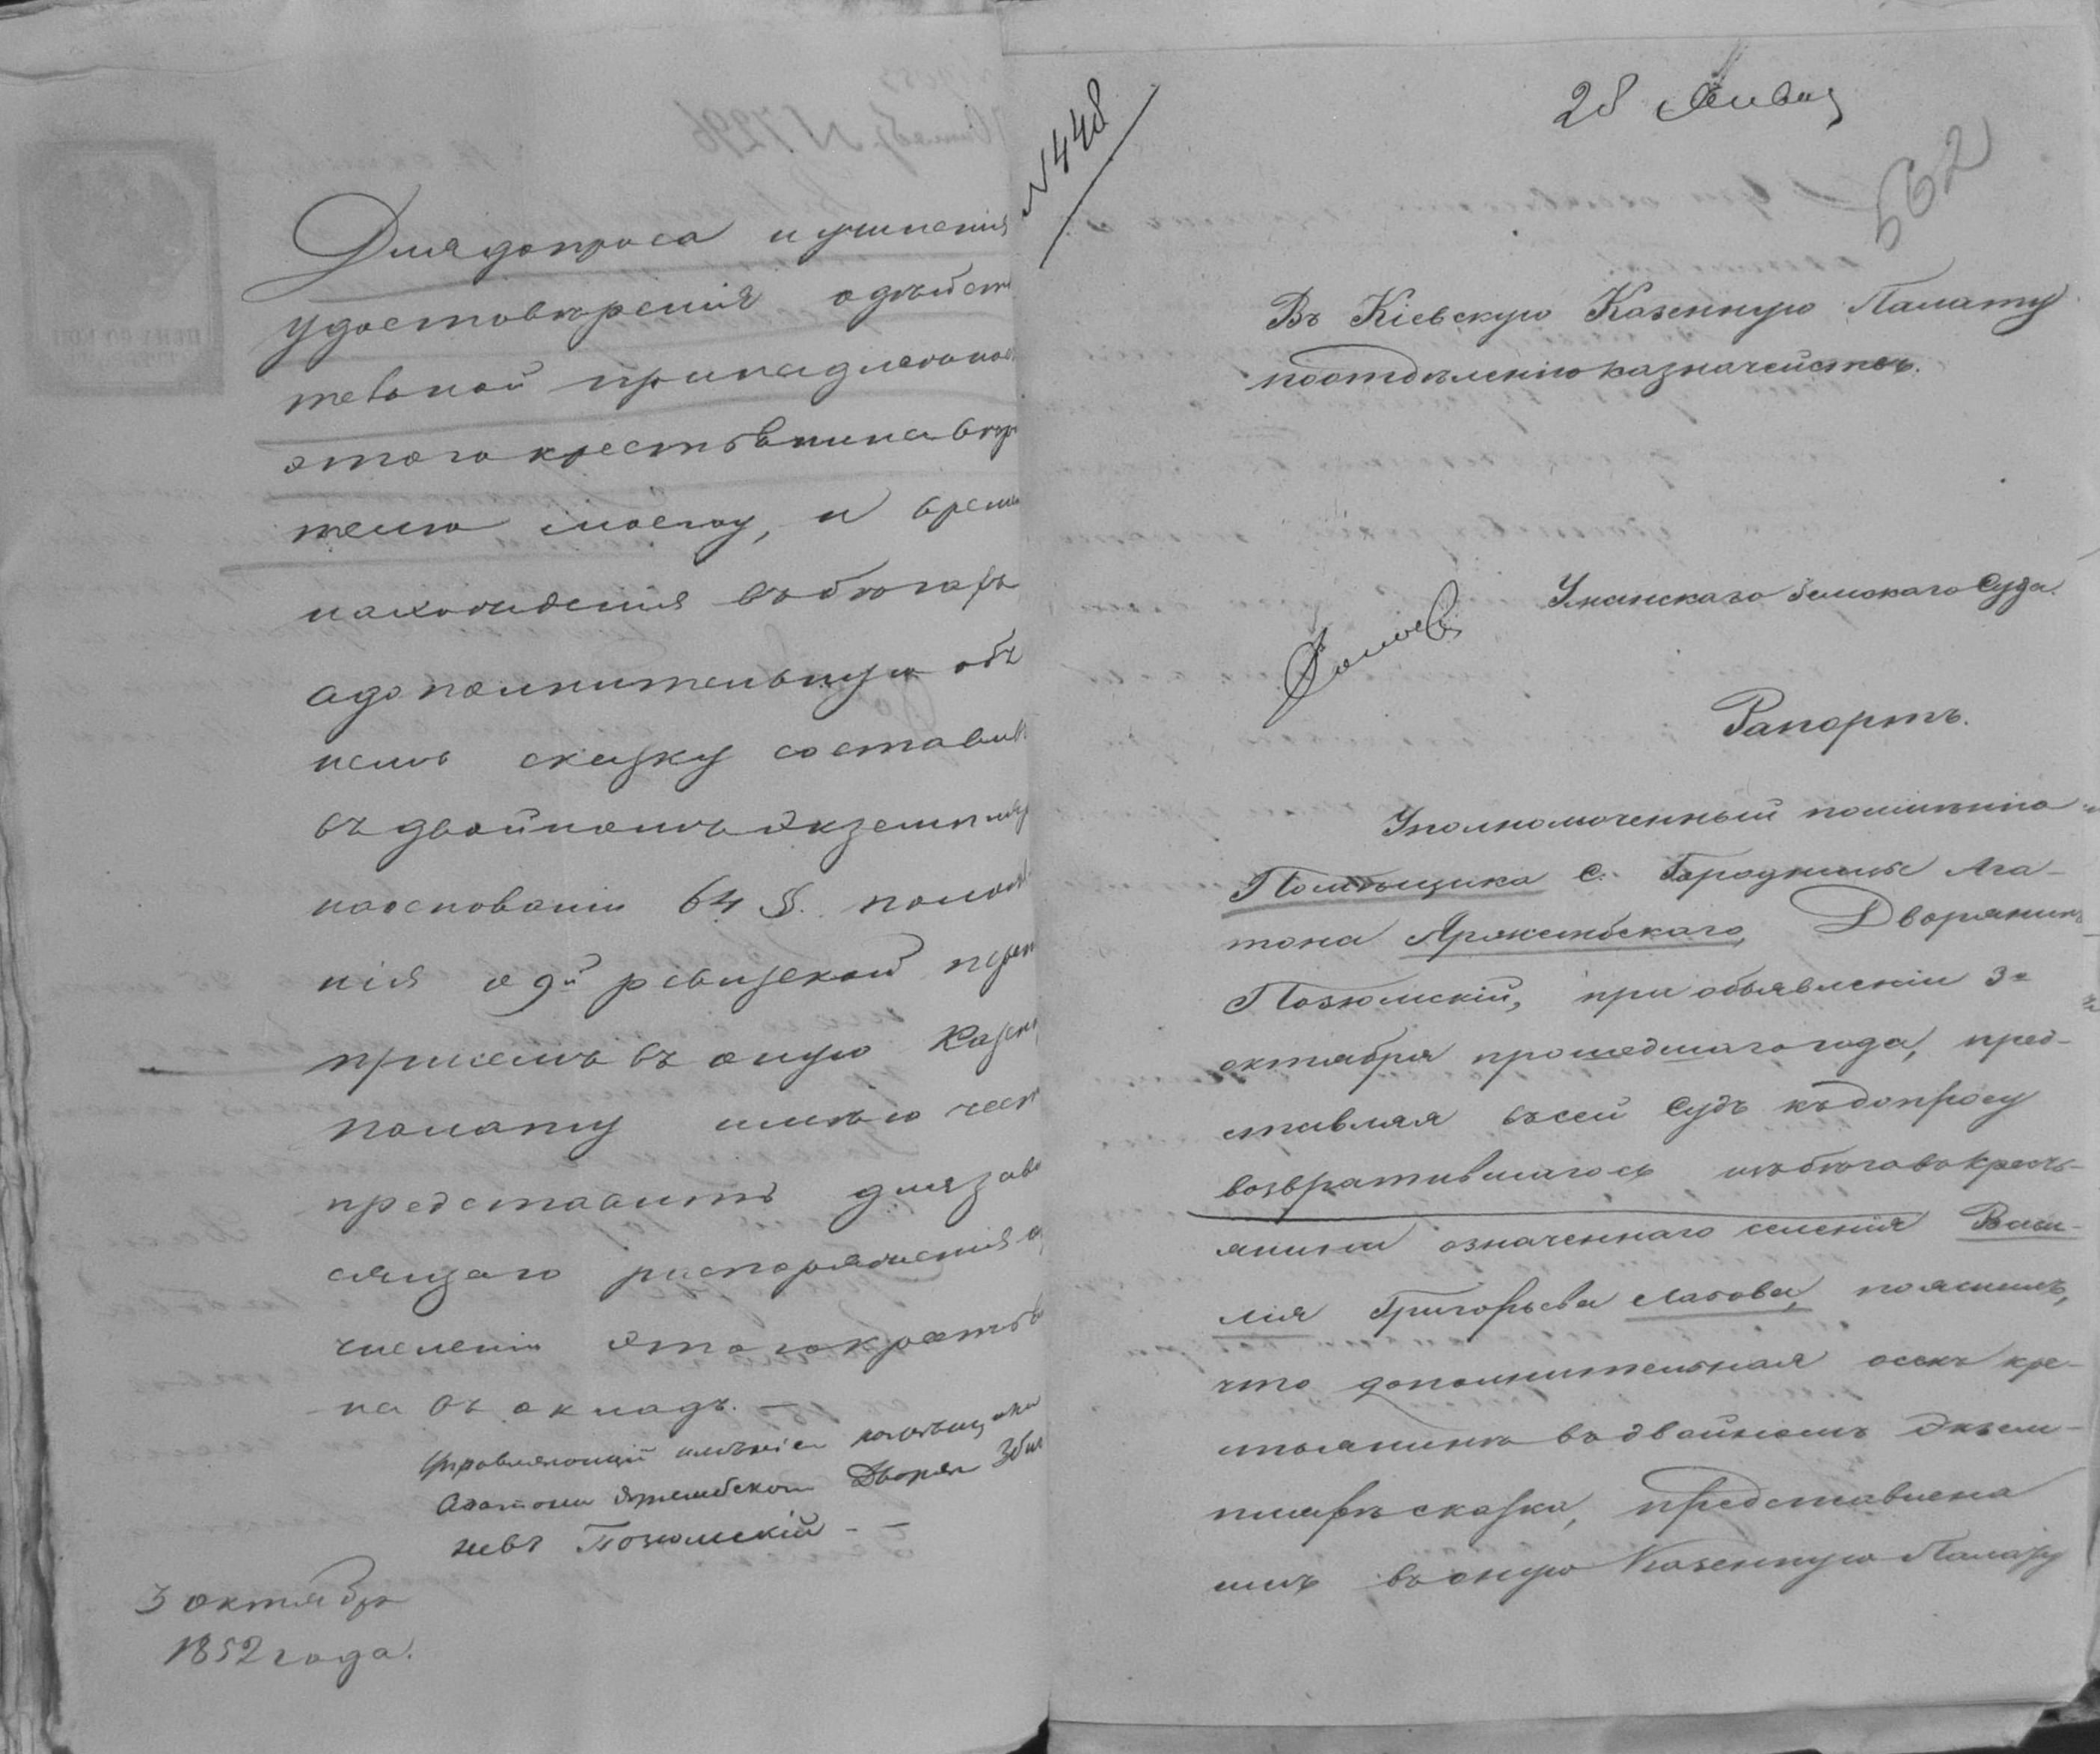 Для допроса и учиненія
удостовѣренія о дѣйст
тельной принадлежнос
этого крестьянина вѣр
телю моему, и време
нахожденія въ бѣгахъ
а дополнительную объ
немъ сказку составив
въ двойномъ экземпля
на основаніи 64 §. полож
нія о 9й ревизской переп
при семъ въ оную Казен
полату имѣю чест
представить для зави
сящаго распоряженія о
численіи этого крестья
на въ окладъ. —
Управляющій имѣніем помѣщика
Агатона Яржембскаго Дворян
Позюмскій - -
3 октября
1852 года.
N 448
28 Январ
562
Въ Кіевскую Казенную Палату
по отдѣленію казначействъ.
Уманскаго Земскаго Суда.
Рапортъ.
Уполномоченный по имѣнію
Помѣщика с. Городницы Ага-
тона Яржембскаго, Дворянинъ
Позюмскій, при объявленіи 3го
октября прошедшаго года, пред-
ставляя въ сей Судъ къ допросу
возвратившагось изъ бѣговъ кресть-
янина означеннаго селенія Васи-
лія Григорьева Лазова, пояснилъ,
что дополнительная о семъ кре-
стьянинѣ въ двойномъ экзем-
плярѣ сказка, представлена
имъ въ оную Казенную Палату